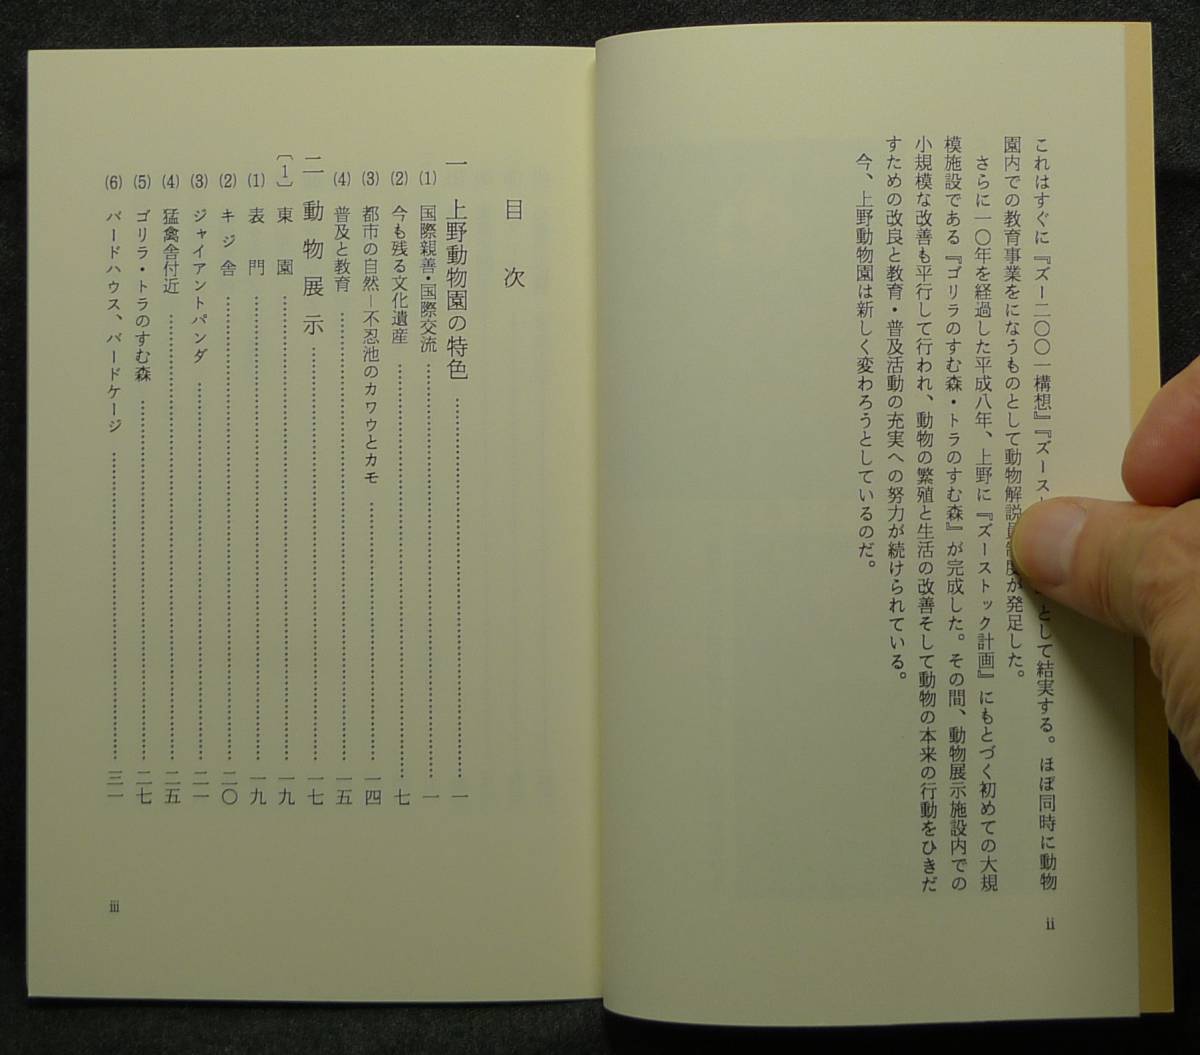 これはすぐに『ズー二〇〇一構想』『ズースト として結実する。ほぼ同時に動物
園内での教育事業をになうものとして動物解説員制度が発足した。
さらに一〇年を経過した平成八年、上野に『ズーストック計画』にもとづく初めての大規
模施設である『ゴリラのすむ森・トラのすむ森』が完成した。その間、動物展示施設内での
小規模な改善も平行して行われ、動物の繁殖と生活の改善そして動物の本来の行動をひきだ
すための改良と教育・普及活動の充実への努力が続けられている。
今、上野動物園は新しく変わろうとしているのだ。
ii
目次
一 上野動物園の特色……………………一
(1) 国際親善・国際交流……………………一
(2) 今も残る文化遺産……………………七
(3) 都市の自然―不忍池のカワウとカモ……………………一四
(4) 普及と教育……………………一五
二 動物展示……………………一七
〔1〕 東園……………………一九
(1) 表門……………………一九
(2) キジ舎……………………二〇
(3) ジャイアントパンダ……………………二一
(4) 猛禽舎付近……………………二五
(5) ゴリラ・トラのすむ森……………………二七
(6) バードハウス、バードケージ……………………三一
iii